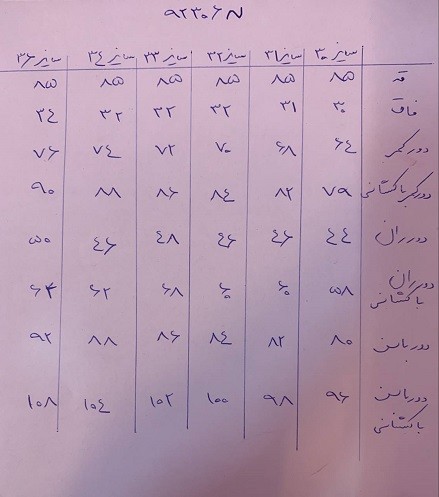 ۹۲۳۰۶N
سایز ۳۰ سایز ۳۱ سایز ۳۲ سایز ۳۳ سایز ۳۴ سایز ۳۶
قد ۸۵ ۸۵ ۸۵ ۸۵ ۸۵ ۸۵
فاق ۳۰ ۳۱ ۳۲ ۳۲ ۳۲ ۳۴
دورکمر ۶۴ ۶۸ ۷۰ ۷۲ ۷۴ ۷۶
دورکمر باکشانی ۷۹ ۸۲ ۸۴ ۸۶ ۸۸ ۹۰
دورران ۴۴ ۴۶ ۴۶ ۴۸ ۴۶ ۵۰
دورران
باکشانی ۵۸ ۶۰ ۶۰ ۶۸ ۶۲ ۶۴
دورباسن ۸۰ ۸۲ ۸۴ ۸۶ ۸۸ ۹۲
دورباسن ۹۶ ۹۸ ۱۰۰ ۱۰۲ ۱۰۴ ۱۰۸
باکشانی